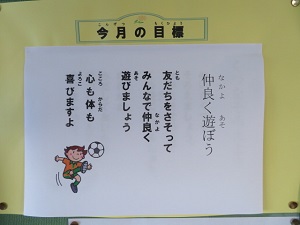 今月の目標
仲良く遊ぼう
友だちをさそって
みんなで仲良く
遊びましょう
心も体も
喜びますよ